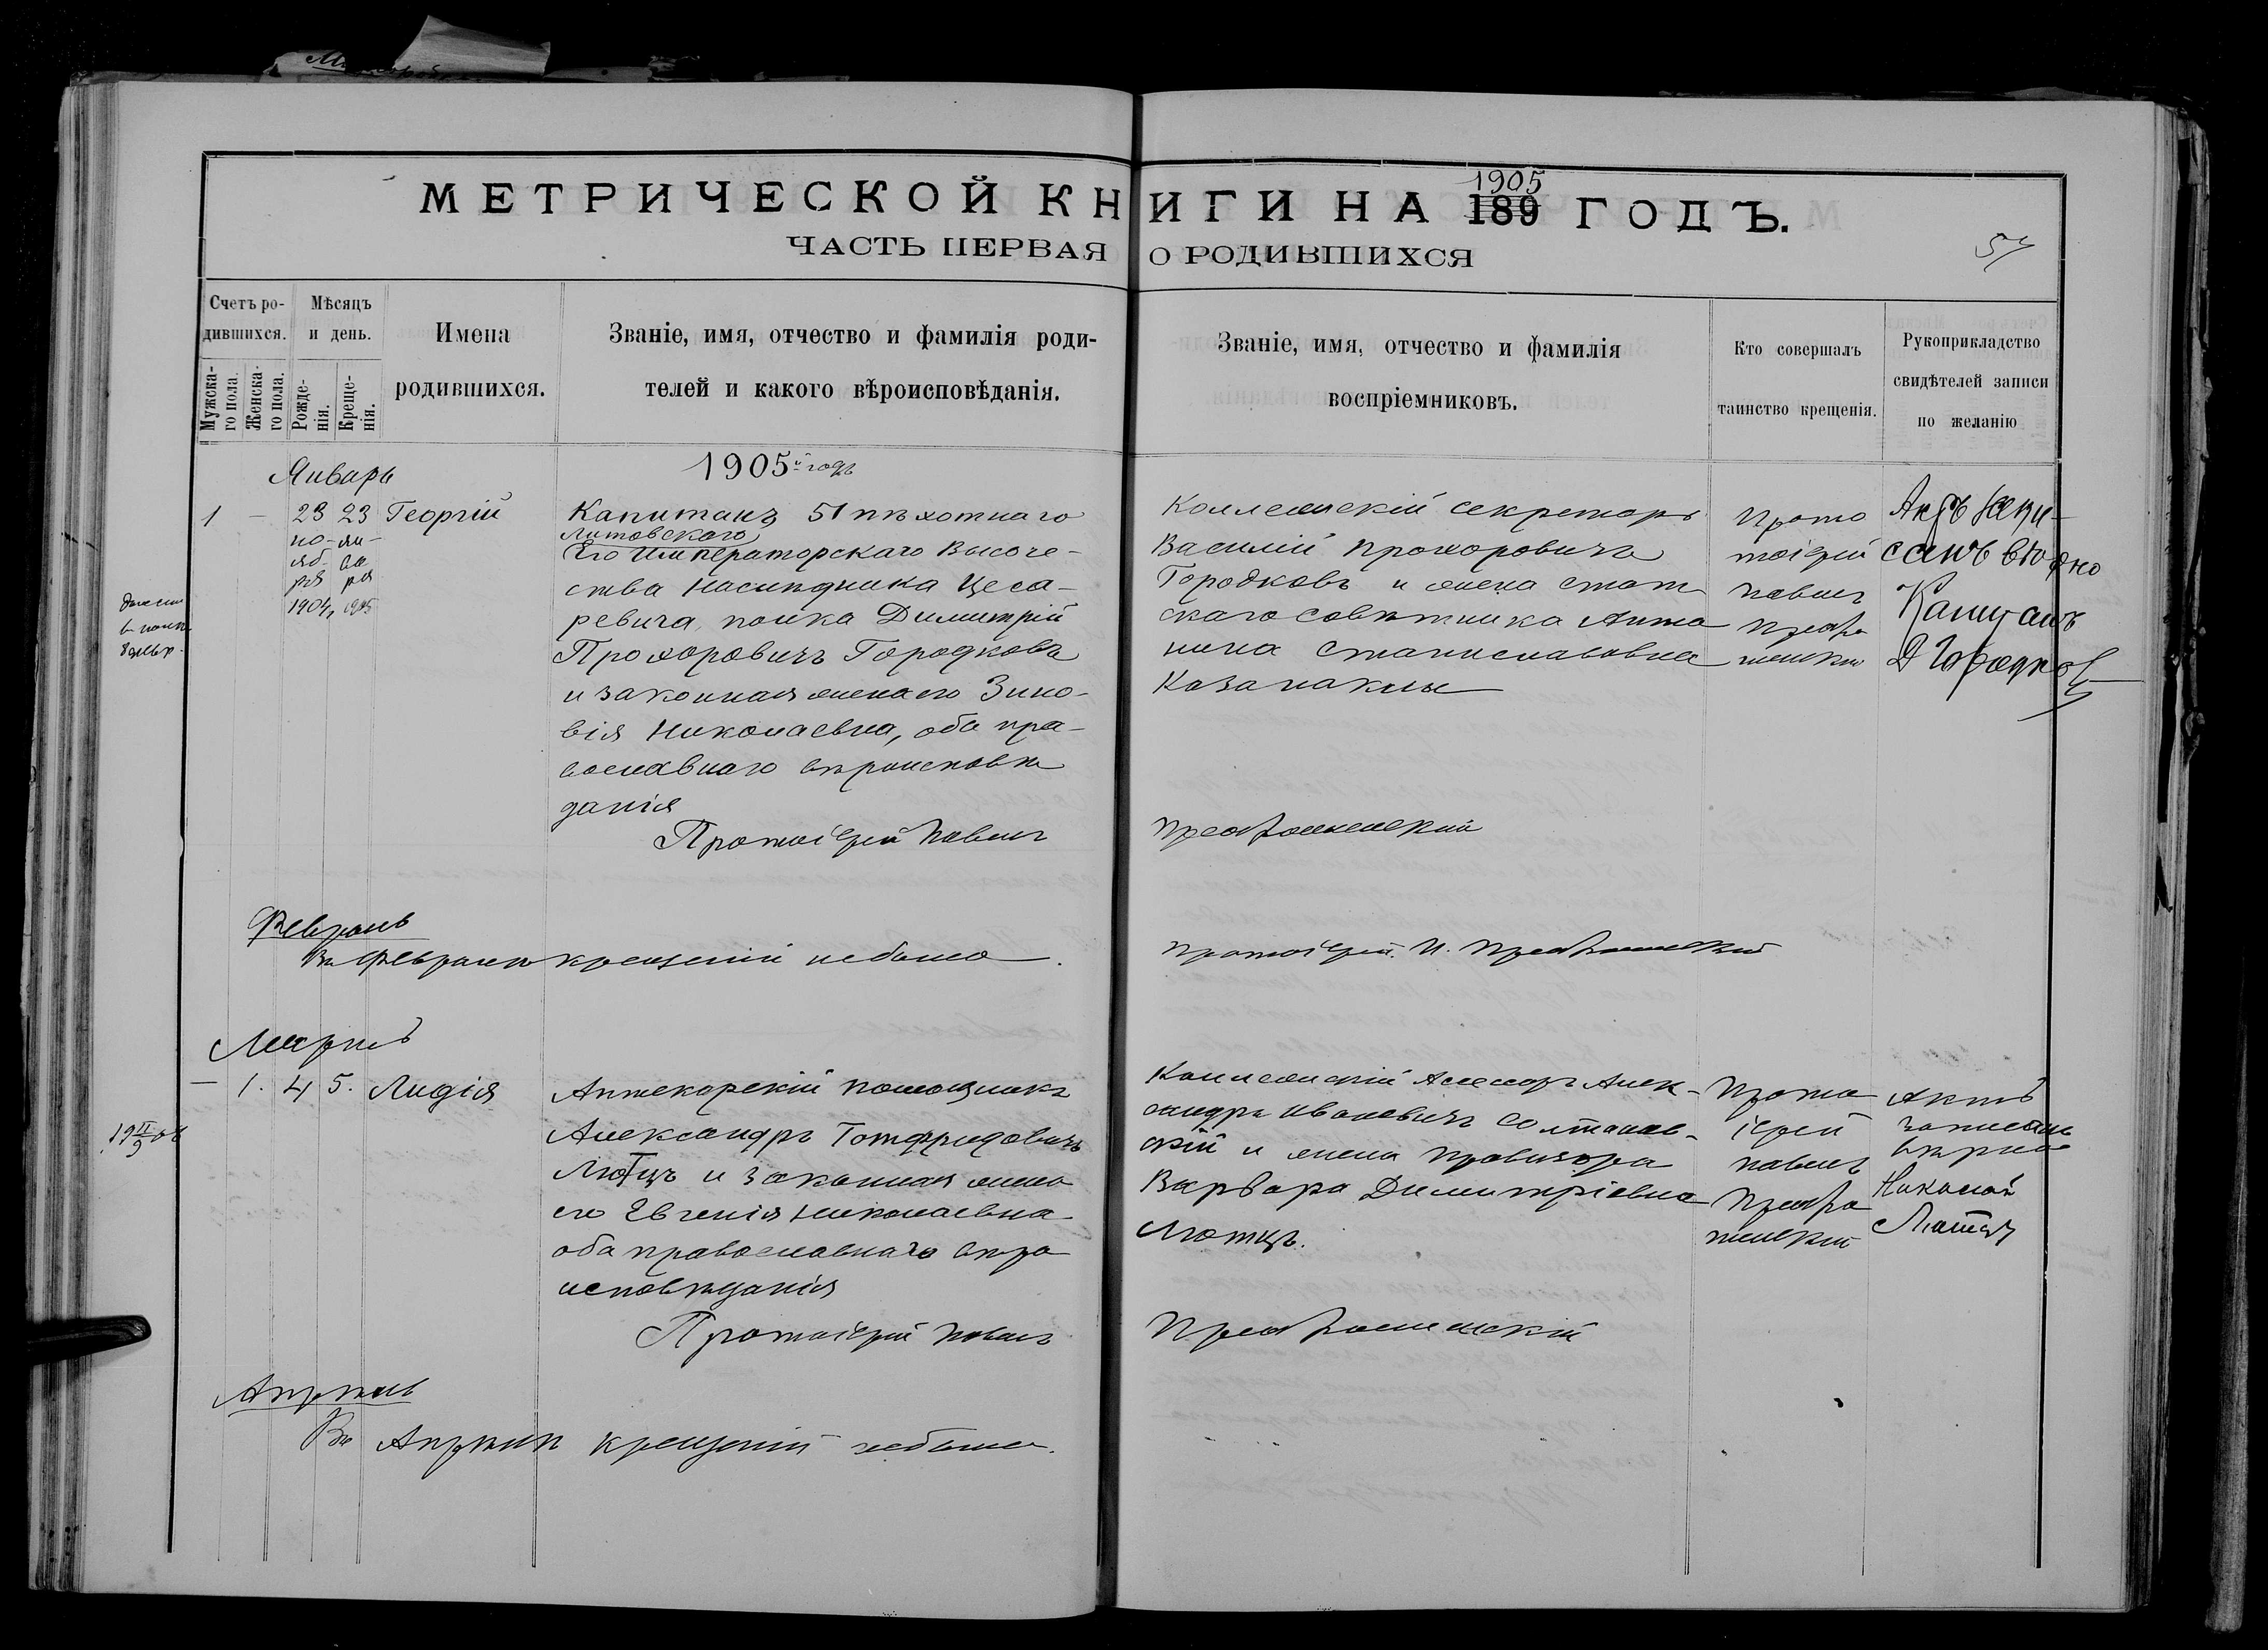 МЕТРИЧЕСКОЙ КНИГИ НА 189 ГОДЪ.
1905
ЧАСТЬ ПЕРВАЯ О РОДИВШИХСЯ
57
Счетъ ро-
дившихся.
Мужска-
го пола.
Женска-
го пола.
Мѣсяцъ
и день.
Рожде-
нія.
Креще-
нія.
Имена
родившихся.
Званіе, имя, отчество и фамилія роди-
телей и какого вѣроисповѣданія.
Званіе, имя, отчество и фамилія
воспріемниковъ.
Кто совершалъ
таинство крещенія.
Рукоприкладство
свидѣтелей записи
по желанію
Январь
1905й годъ
1 — 23 23 Георгій
но- ян-
яб- ва
ря ря
1904, 1905
Капитанъ 51 пѣхотнаго
Литовскаго
Его Императорскаго Высоче-
ства Наслѣдника Цеса-
ревича полка Димитрій
Прохоровичъ Городковъ
и законная жена его Зино-
вія Николаевна, оба пра-
вославнаго вѣроисповѣ
данія
Протоіерей Павелъ
Коллежскій секретарь
Василій Прохоровичъ
Городковъ и жена стат
скаго совѣтника Анто
нина Станиславовна
Прото
іерей
Павелъ
Преобра
женскій
Актъ запи-
санъ вѣрно
Капитанъ
Д Городковъ
Преображенскій
Февраль
Въ Февралѣ крещеній небыло.
Протоіерей П. Преображенскій
Мартъ
— 1. 4 5. Лидія
Аптекарскій помощникъ
Александръ Готфридовичъ
Лютцъ и законная жена
его Евгенія Николаевна
оба православнаго вѣро
исповѣданія
Протоіерей Павелъ
Коллежскій Асессоръ Алек-
сандръ Ивановичъ Солтанов-
скій и жена провизора
Варвара Димитріевна
Лютцъ.
Прото
іерей
Павелъ
Преобра
женскій
Актъ
записанъ
вѣрно
Николай
Лютцъ
Преображенскій
Апрѣль
Въ Апрѣлѣ крещеній небыло.